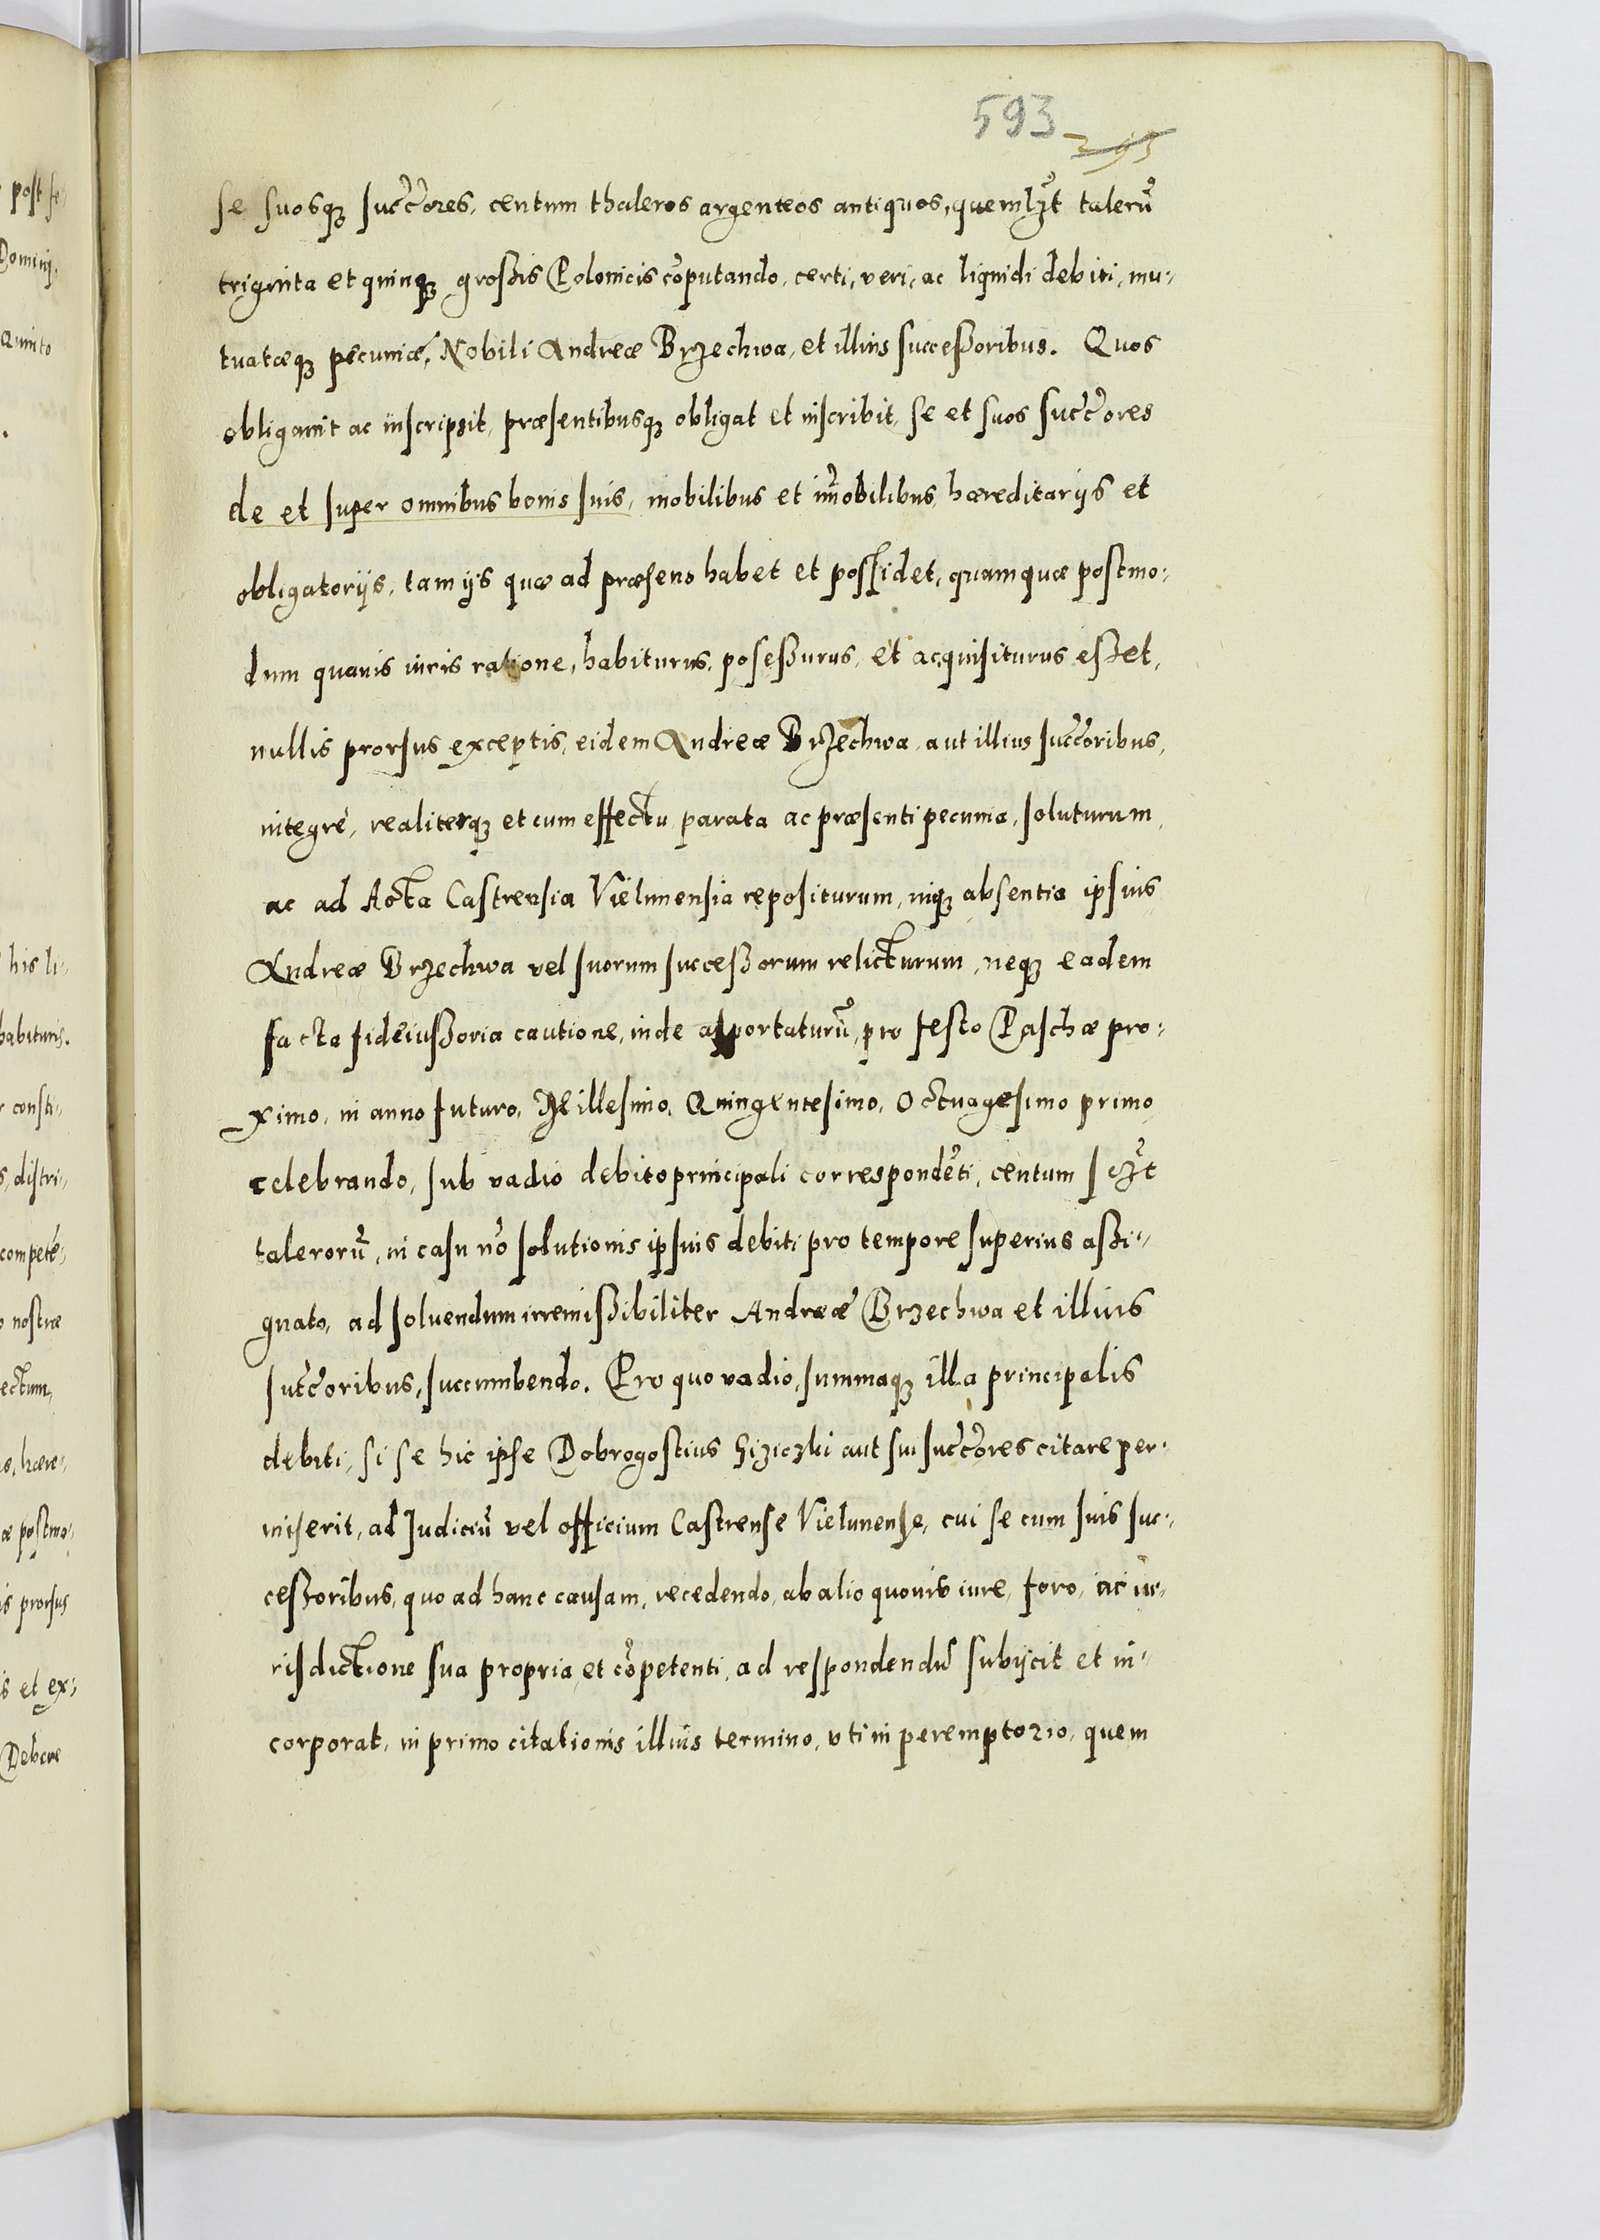 593
se suosq; succ̃ores, centum thaleros argenteos antiquos, quemlȝt talerũ
triginta et quinq; groſsis Polonicis cõputando, certi, veri, ac liquidi debiti, mu-
tuatæq; pecuniæ, Nobili Andreæ Brzechwa, et illius succeſsoribus. Quos
obligauit ac inscripsit, præsentibusq; obligat et inscribit, se et suos succ̃ores
de et super omnibus bonis suis, mobilibus et im̃obilibus, hæreditarijs et
obligatorijs, tam ijs quæ ad præsens habet et poſsidet, quam quæ postmo-
dum quauis iuris ratione, habiturus, poseſsurus, et acquisiturus eſset,
nullis prorsus exceptis, eidem Andreæ Brzechwa, aut illius succ̃oribus,
integrè, realiterq; et cum effectu, parata ac præsenti pecunia, soluturum,
ac ad Acta Castrensia Vielunensia repositurum, inq; absentia ipsius
Andreæ Brzechwa vel suorum succeſsorum relicturum, neq; eadem
facta fideiuſsoria cautione, inde asportaturũ, pro festo Paschæ pro-
ximo, in anno futuro, Millesimo, Quingentesimo, Octuagesimo primo
celebrando, sub vadio debito principali correspondẽti, centum sczt̃
talerorũ, in casu nõ solutionis ipsius debiti pro tempore superius aſsi-
gnato, ad soluendum irremiſsibiliter Andreæ Brzechwa et illius
succ̃oribus, succumbendo. Pro quo vadio, summaq; illa principalis
debiti, si se hic ipse Dobrogostius aut sui succ̃ores citare per-
miserit, ad Judiciũ vel officium Castrense Vielunense, cui se cum suis suc-
ceſsoribus, quo ad hanc causam, recedendo, ab alio quouis iure, foro, ac iu-
risdictione sua propria et cõpetenti, ad respondendũ subijcit et in-
corporat, in primo citationis illius termino, vti in peremptorio, quem